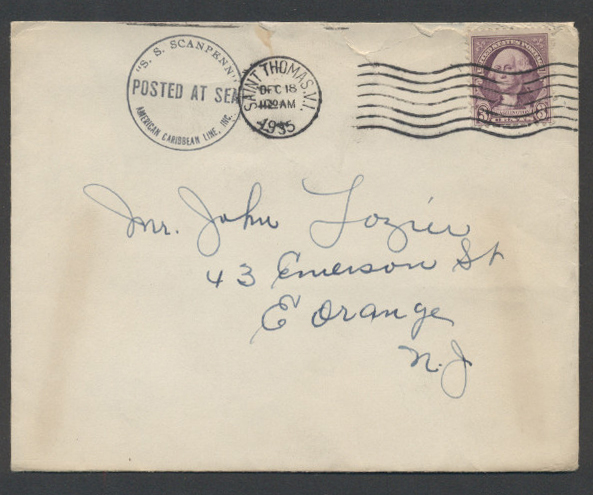 "S. S. SCANPENN"
POSTED AT SEA
AMERICAN CARIBBEAN LINE, INC.
SAINT THOMAS, V.I.
DEC 18
AM
1935
UNITED STATES POSTAGE
3
3
Mr. John Lozier
43 Emerson St
E Orange
N. J